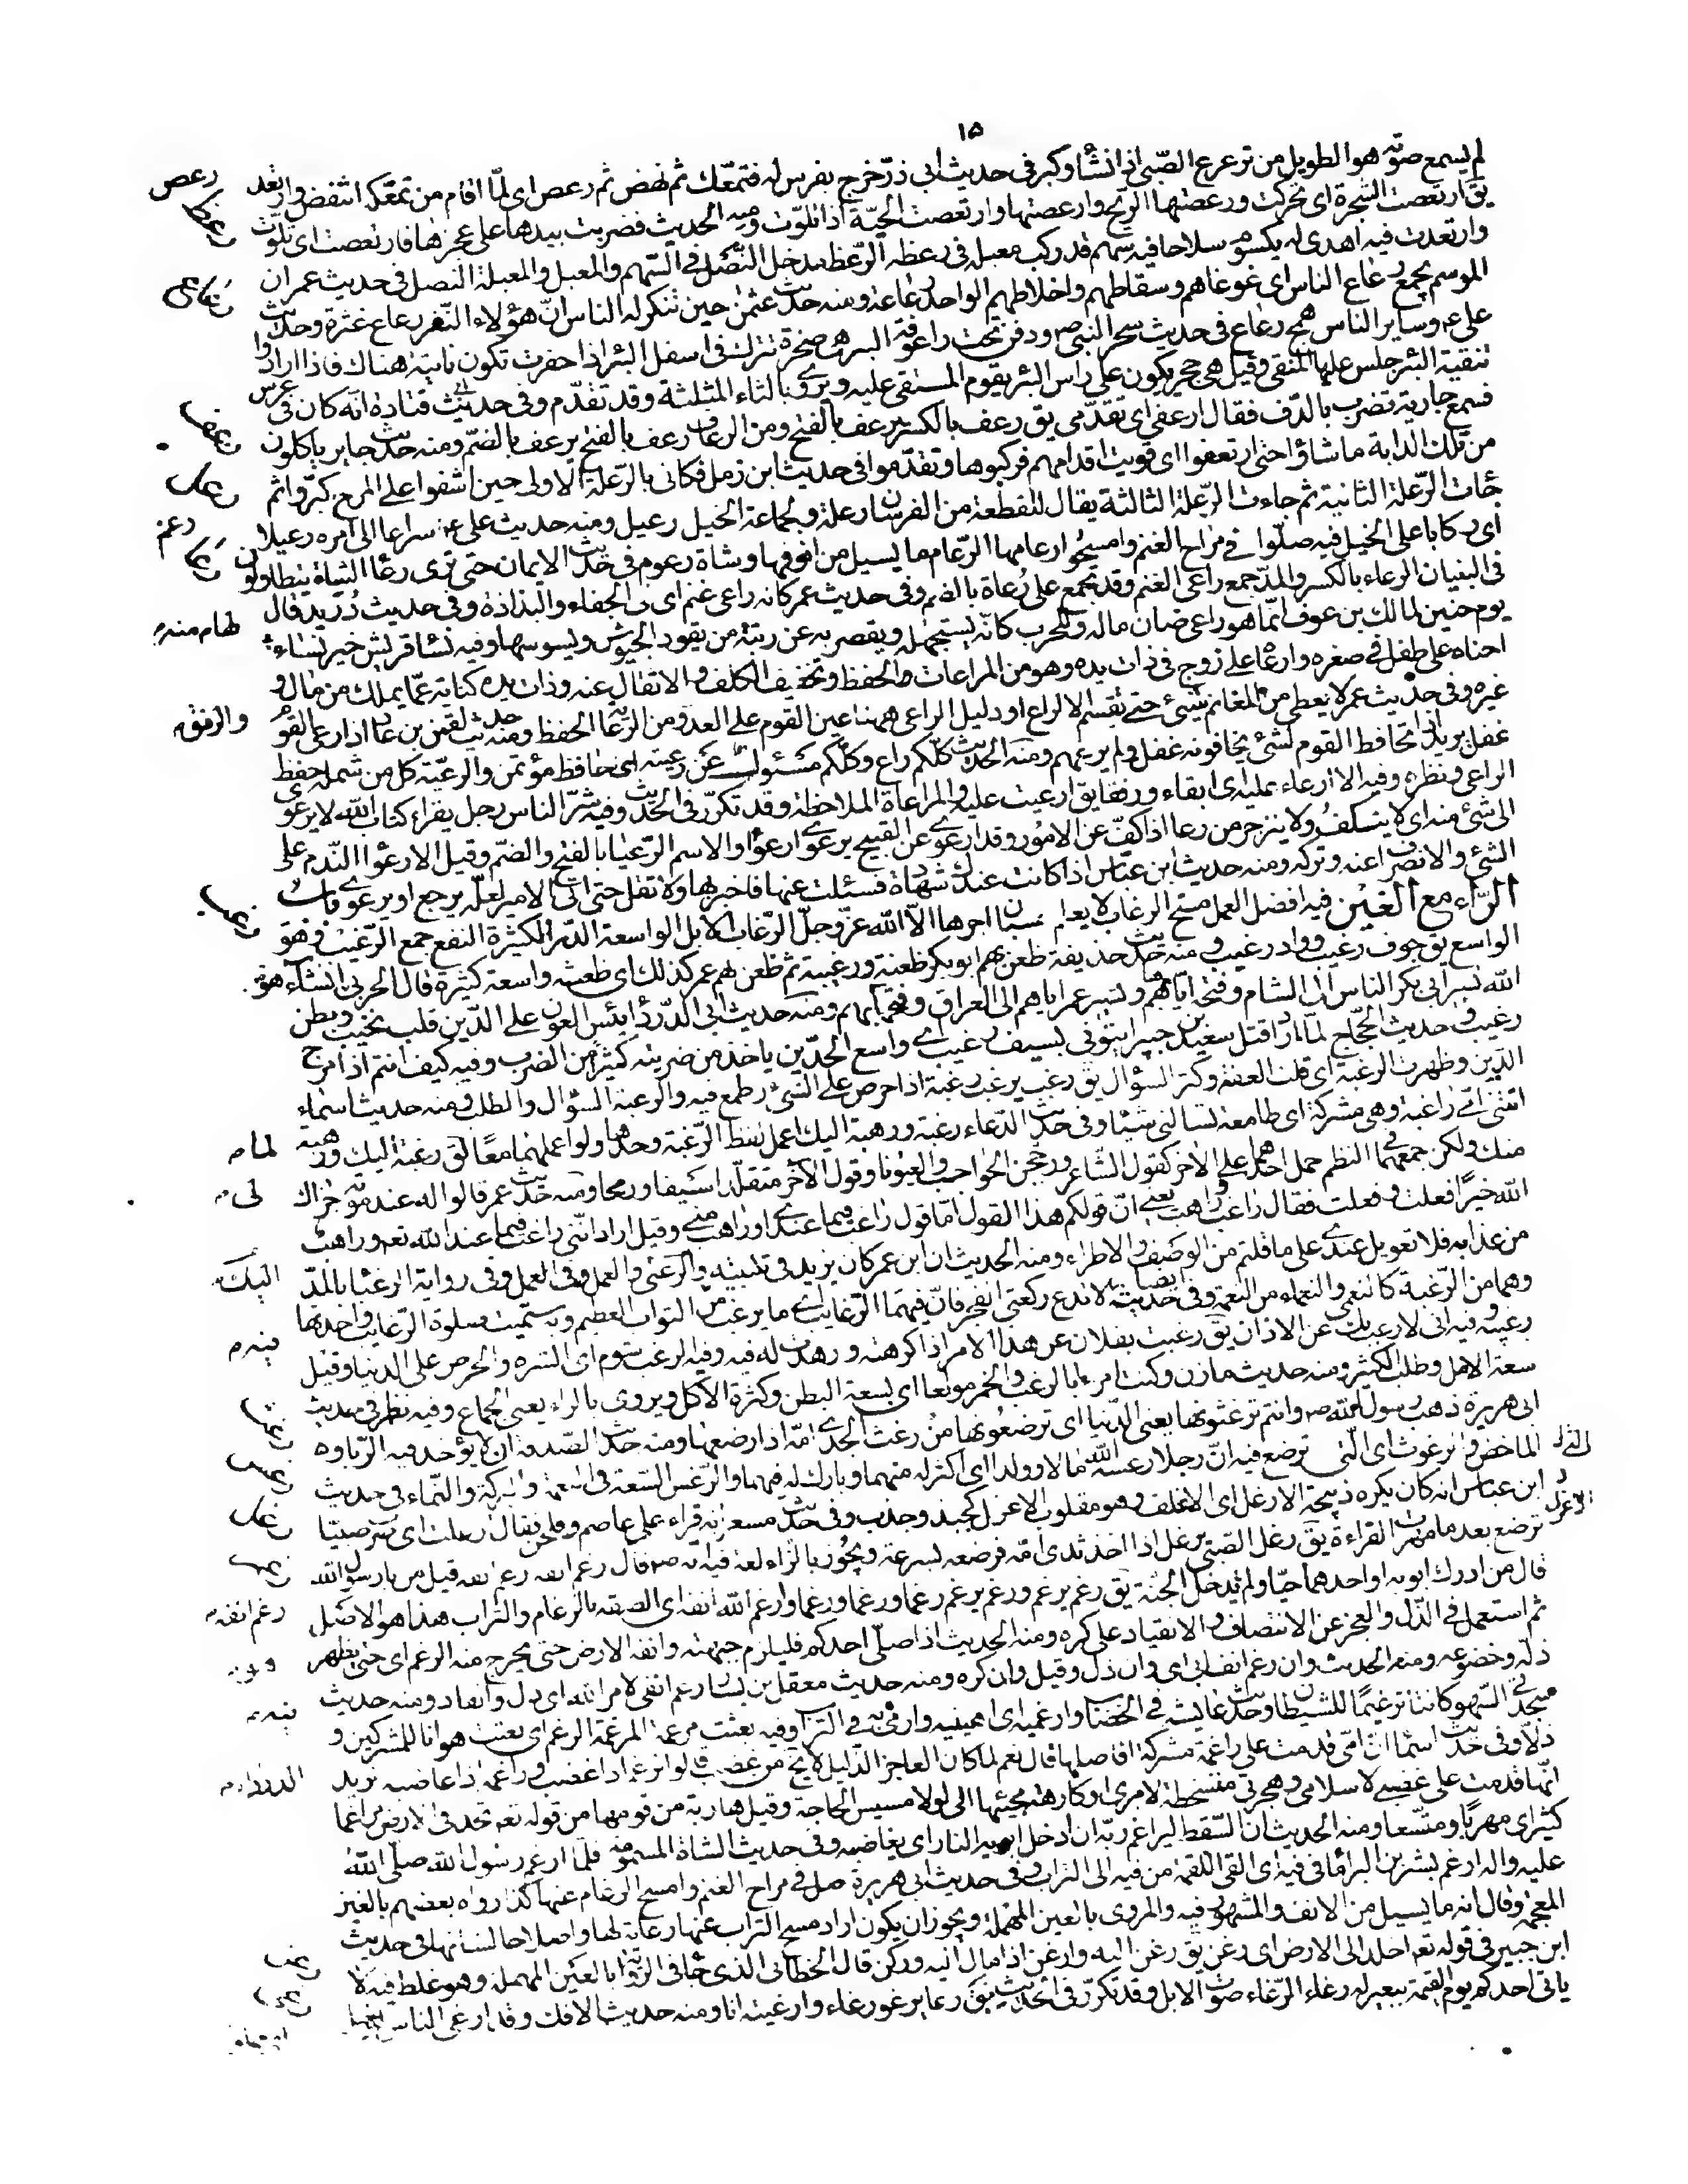 ١٥
لم يسمع صوته هو الطويل من ترعرع الصّبى اذا نشأ وكبر فى حديث ابى ذرّ خرج بفرس له فتمعّك ثم نهض ثم رعص اى لمّا اقام من تمعّكه انتفض وارتعد
رعص
يق ارتعصت الشجرة اى تحركت ورعصتها الريح وارعصتها وارتعصت الحيّة اذا تلوّت ومنه الحديث فضربت بيدها على عجزها فارتعصت اى تلوّت
وارتعدت فيه اهدى له يكسوم سلاحا فيه سهم قد ركب معبله فى رعظه الرّعظ مدخل النّصل فى السّهم والمعبل والمعبلة النصل فى حديث عمر ان
رعظ
الموسم يجمع رعاع الناس اى غوغاهم وسقاطهم واخلاطهم الواحد رعاعة ومنه حديث عثمن حين تنكر له الناس انّ هؤلاء النّفر رعاع غثرة وحديث
رعاع
على ع وساير الناس همج رعاع فى حديث سحر النبى ص ودفن تحت راعوفة البئر هى صخرة تترك فى اسفل البئر اذا حفرت تكون ناتية هناك فاذا ارادوا
تنقية البئر جلس عليها المنقى وقيل هى حجر يكون على راس البئر يقوم المستقى عليه ويروى بالثاء المثلثة وقد تقدّم وفى حديث ابى قتادة انّه كان فى عرس
فسمع جارية تضرب بالدّف فقال ارعفى اى تقدّمى يق رعف بالكسر يرعف بالفتح ومن الرعاف رعف بالفتح يرعف بالضمّ ومنه حديث جابر ياكلون
رعف
من تلك الدابة ما شاؤا حتى ارتعفوا اى قويت اقدامهم فركبوها وتقدّموا فى حديث ابن زمل فكانى بالرّعلة الاولى حين اشفوا على المرج كبّروا ثم
رعل
جاءت الرّعلة الثانية ثم جاءت الرّعلة الثالثة يقال للقطعة من الفرسان رعلة ولجماعة الخيل رعيل ومنه حديث على ع سراعا الى امره رعيلا
اى ركابا على الخيل فيه صلّوا فى مراح الغنم وامسحوا رعامها الرّعام ما يسيل من انوفها وشاة رعوم فى حديث الايمان حتى ترى رعاء الشاة يتطاولون
رعم
رعا
فى البنيان الرعاء بالكسر والمدّ جمع راعى الغنم وقد يجمع على رعاة بالضم وفى حديث عمر كانه راعى غنم اى فى الجفاء والبذاذة وفى حديث دريد قال
يوم حنين لمالك بن عوف انّما هو راعى ضان ماله وللحرب كانّه يستجهله ويقصر به عن رتبة من يقود الجيوش ويسوسها وفيه نساء قريش خير نساء
احناه على طفل فى صغره وارعاه على زوج فى ذات يده وهو من المراعات والحفظ وتخفيف الكلف والاثقال عنه وذات يده كناية عمّا يملك من مال و
غيره وفى حديث عمر لا يعطى من المغانم شيئ حتى تقسم الا لراع او دليل الراعى ههنا عين القوم على العدو من الرعاية الحفظ ومنه حديث لقمن بن عاد اذا رعى القوم
والرفق م
غفل يريد اذا تحافظ القوم لشئ يخافونه غفل ولم يرعهم ومنه الحديث كلّكم راع وكلّكم مسئول عن رعيته اى حافظ مؤتمن والرعيّة كل من شمله حفظ
الراعى ونظره وفيه الا ارعاء عليه اى ابقاء ورفقا يق ارعيت عليه والمراعاة الملاحظة وقد تكرّر فى الحديث وفيه شرّ الناس رجل يقرا كتاب الله لا يرعوى
الى شئ منه اى لا ينكف ولا ينزجر من رعا اذا كفّ عن الامور وقد ارعوى عن القبيح يرعوى ارعواء والاسم الرّعيا بالفتح والضمّ وقيل الارعواء الندم على
الشئ والانصراف عنه وتركه ومنه حديث ابن عبّاس اذا كانت عندك شهادة فسئلت عنها فاخبر بها ولا تقل حتى اتى الامير لعلّه يرجع او يرعوى باب
الرّاء مع الغين فيه افضل العمل منح الرغاب لا يعلم حسبان اجرها الّا الله عزّ وجلّ الرّغاب الابل الواسعة الدّر الكثيرة النفع جمع الرّغيب وهو
رغب
الواسع يق جوف رغيب وواد رغيب ومنه حديث حذيفة ظعن بهم ابو بكر ظعنة رغيبة ثم ظعن بهم عمر كذلك اى ظعنة واسعة كثيرة قال الحربى انشاء هو
الله تسيير ابى بكر الناس الى الشام وفتحه اياها بهم وتسيير عمر اياهم الى العراق وفتحها بهم ومنه حديث ابى الدّرداء بئس العون على الدّين قلب نخيب وبطن
رغيب وفى حديث الحجّاج لمّا اراد قتل سعيد بن جبير ايتونى بسيف رغيب اى واسع الحدّين ياخذ من ضريبته كثيرا من الضرب وفيه كيف انتم اذا مرج
الدّين وظهرت الرغبة اى قلت العفة وكثر السؤال يق رغب يرغب رغبة اذا حرص على الشئ وطمع فيه والرغبة السؤال والطلب ومنه حديث اسماء
اتتنى امّى راغبة وهى مشركة اى طامعة تسالنى شيئا وفى حديث الدّعاء رغبة ورهبة اليك اعمل لفظ الرّغبة وحدها ولو اعملهما معا لقال رغبة اليك ورهبة
منك ولكن لما جمعهما فى النظم حمل احدهما على الآخر كقول الشّاعر وزججن الحواجب والعيونا وقول الآخر متقلّدا سيفا ورمحا ومنه حديث عمر قالوا له عند موته جزاك
الله خيرا فعلت وفعلت فقال راغب وراهب يعنى انّ قولكم هذا القول امّا قول راغب فيما عندى او راهب منى وقيل اراد انّنى راغب فيما عند الله تعه وراهب
من عذابه فلا تعويل عندى على ما قلتم من الوصف والاطراء ومنه الحديث ان ابن عمر كان يزيد فى تلبيته والرغبى اليك والعمل وفى رواية الرغباء بالمدّ
اليك م
وهما من الرّغبة كالنعمى والنعماء من النعمة وفى حديثه ايضا لا تدع ركعتى الفجر فانّ فيهما الرّغايب اى ما يرغب فيه من الثواب العظيم وبه سمّيت صلوة الرّغايب واحدتها
رغيبة وفيه انى لارغب بك عن الاذان يق رغبت بفلان عن هذا الامر اذا كرهته وزهدت له فيه وفيه الرغب شوم اى الشره والحرص على الدنيا وقيل
سعة الامل وطلب الكثير ومنه حديث مازن وكنت امرءا بالرغب والخمر مولعا اى بسعة البطن وكثرة الاكل ويروى بالزاء يعنى الجماع وفيه نظر فى حديث
ابى هريرة ذهب رسول الله ص وانتم ترغثونها يعنى الدّنيا اى ترضعونها من رغث الجدى امّه اذا رضعها ومنه حديث الصّدقة ان لا يؤخذ فيه الربا و
رغث
الماخض والرغوث اى الّتى ترضع فيه انّ رجلا رغسه الله مالا وولدا اى اكثر له منهما وبارك له فيهما والرّغس السّعة فى النعمة والبركة والنّماء فى حديث
رغس
ابن عباس انه كان يكره ذبيحة الارغل اى الاغلف وهو مقلوب الاغرل كجبذ وجذب وفى حديث مسعر انه قراء على عاصم فلحن فقال ارغلت اى صرت صبيّا
رغل
ترضع بعد ما مهرت القراءة يق رغل الصّبى يرغل اذا اخذ ثدى امّه فرضعه بسرعة ويجوز بالزاء لغة فيه انه ص قال رغم انفه رغم انفه قيل من يا رسول الله
رغم
رغم انفه م
قال من ادرك ابويه او احدهما حيّا ولم يدخل الجنة يق رغم يرغم ورغم يرغم رغما ورغما ورغما وارغم الله انفه اى الصقه بالرغام والتراب هذا هو الاصل
ثم استعمل فى الذّل والعجز عن الانتصاف والانقياد على كره ومنه الحديث اذا صلّى احدكم فليلزم جبهته وانفه الارض حتى يخرج منه الرغم اى حتى يظهر
ذلّه وخضوعه ومنه الحديث وان رغم انف ابى اى وان ذلّ وقيل وان كره ومنه حديث معقل بن يسار رغم انفى لامر الله اى ذلّ وانقاد ومنه حديث
سجدتى السّهو كانتا ترغيما للشيطان وحديث عايشة فى الخضاب وارغميه اى اهينيه وارمى به فى التراب وفيه بعثت مرغمة المرغمة الرغم اى بعثت هوانا للمشركين و
ذلّا وفى حديث اسماء انّ امّى قدمت علىّ راغمة مشركة افاصلها قال نعم لمّا كان العاجز الذّليل لا يخ من غضب قالوا ترغّم اذا غضب وراغمه اذا غاضبه تريد
انّها قدمت علىّ غضبى لاسلامى وهجرتى متسخطة لامرى او كارهة مجيئها الىّ لولا مسيس الحاجة وقيل هاربة من قومها من قوله تعه يجد فى الارض مراغما
كثيرا اى مهربا ومتّسعا ومنه الحديث ان السّقط ليراغم ربّه ان ادخل ابويه النار اى يغاضبه وفى حديث الشاة المسمومة فلمّا ارغم رسول الله صلّى الله
عليه واله ارغم بشر بن البراء ما فى فيه اى القى اللقمة من فيه الى التراب وفى حديث ابى هريرة صل فى مراح الغنم وامسح الرغام عنها كذا رواه بعضهم بالغين
المعجمة وقال انه ما يسيل من الانف والمشهور فيه والمروى بالعين المهملة ويجوز ان يكون اراد مسح التراب عنها رعاية لها واصلاحا لشانها فى حديث
ابن جبير فى قوله تعه اخلد الى الارض اى رغن يق رغن اليه وارغن اذا مال اليه وركن قال الخطابى الذى جاء فى الرواية بالعين المهملة وهو غلط فيه لا
رغن
ياتى احدكم يوم القيمة ببعير له رغاء الرّغاء صوت الابل وقد تكرّر فى الحديث يق رغا يرغو رغاء وارغيته انا ومنه حديث الافك وقد ارغى الناس